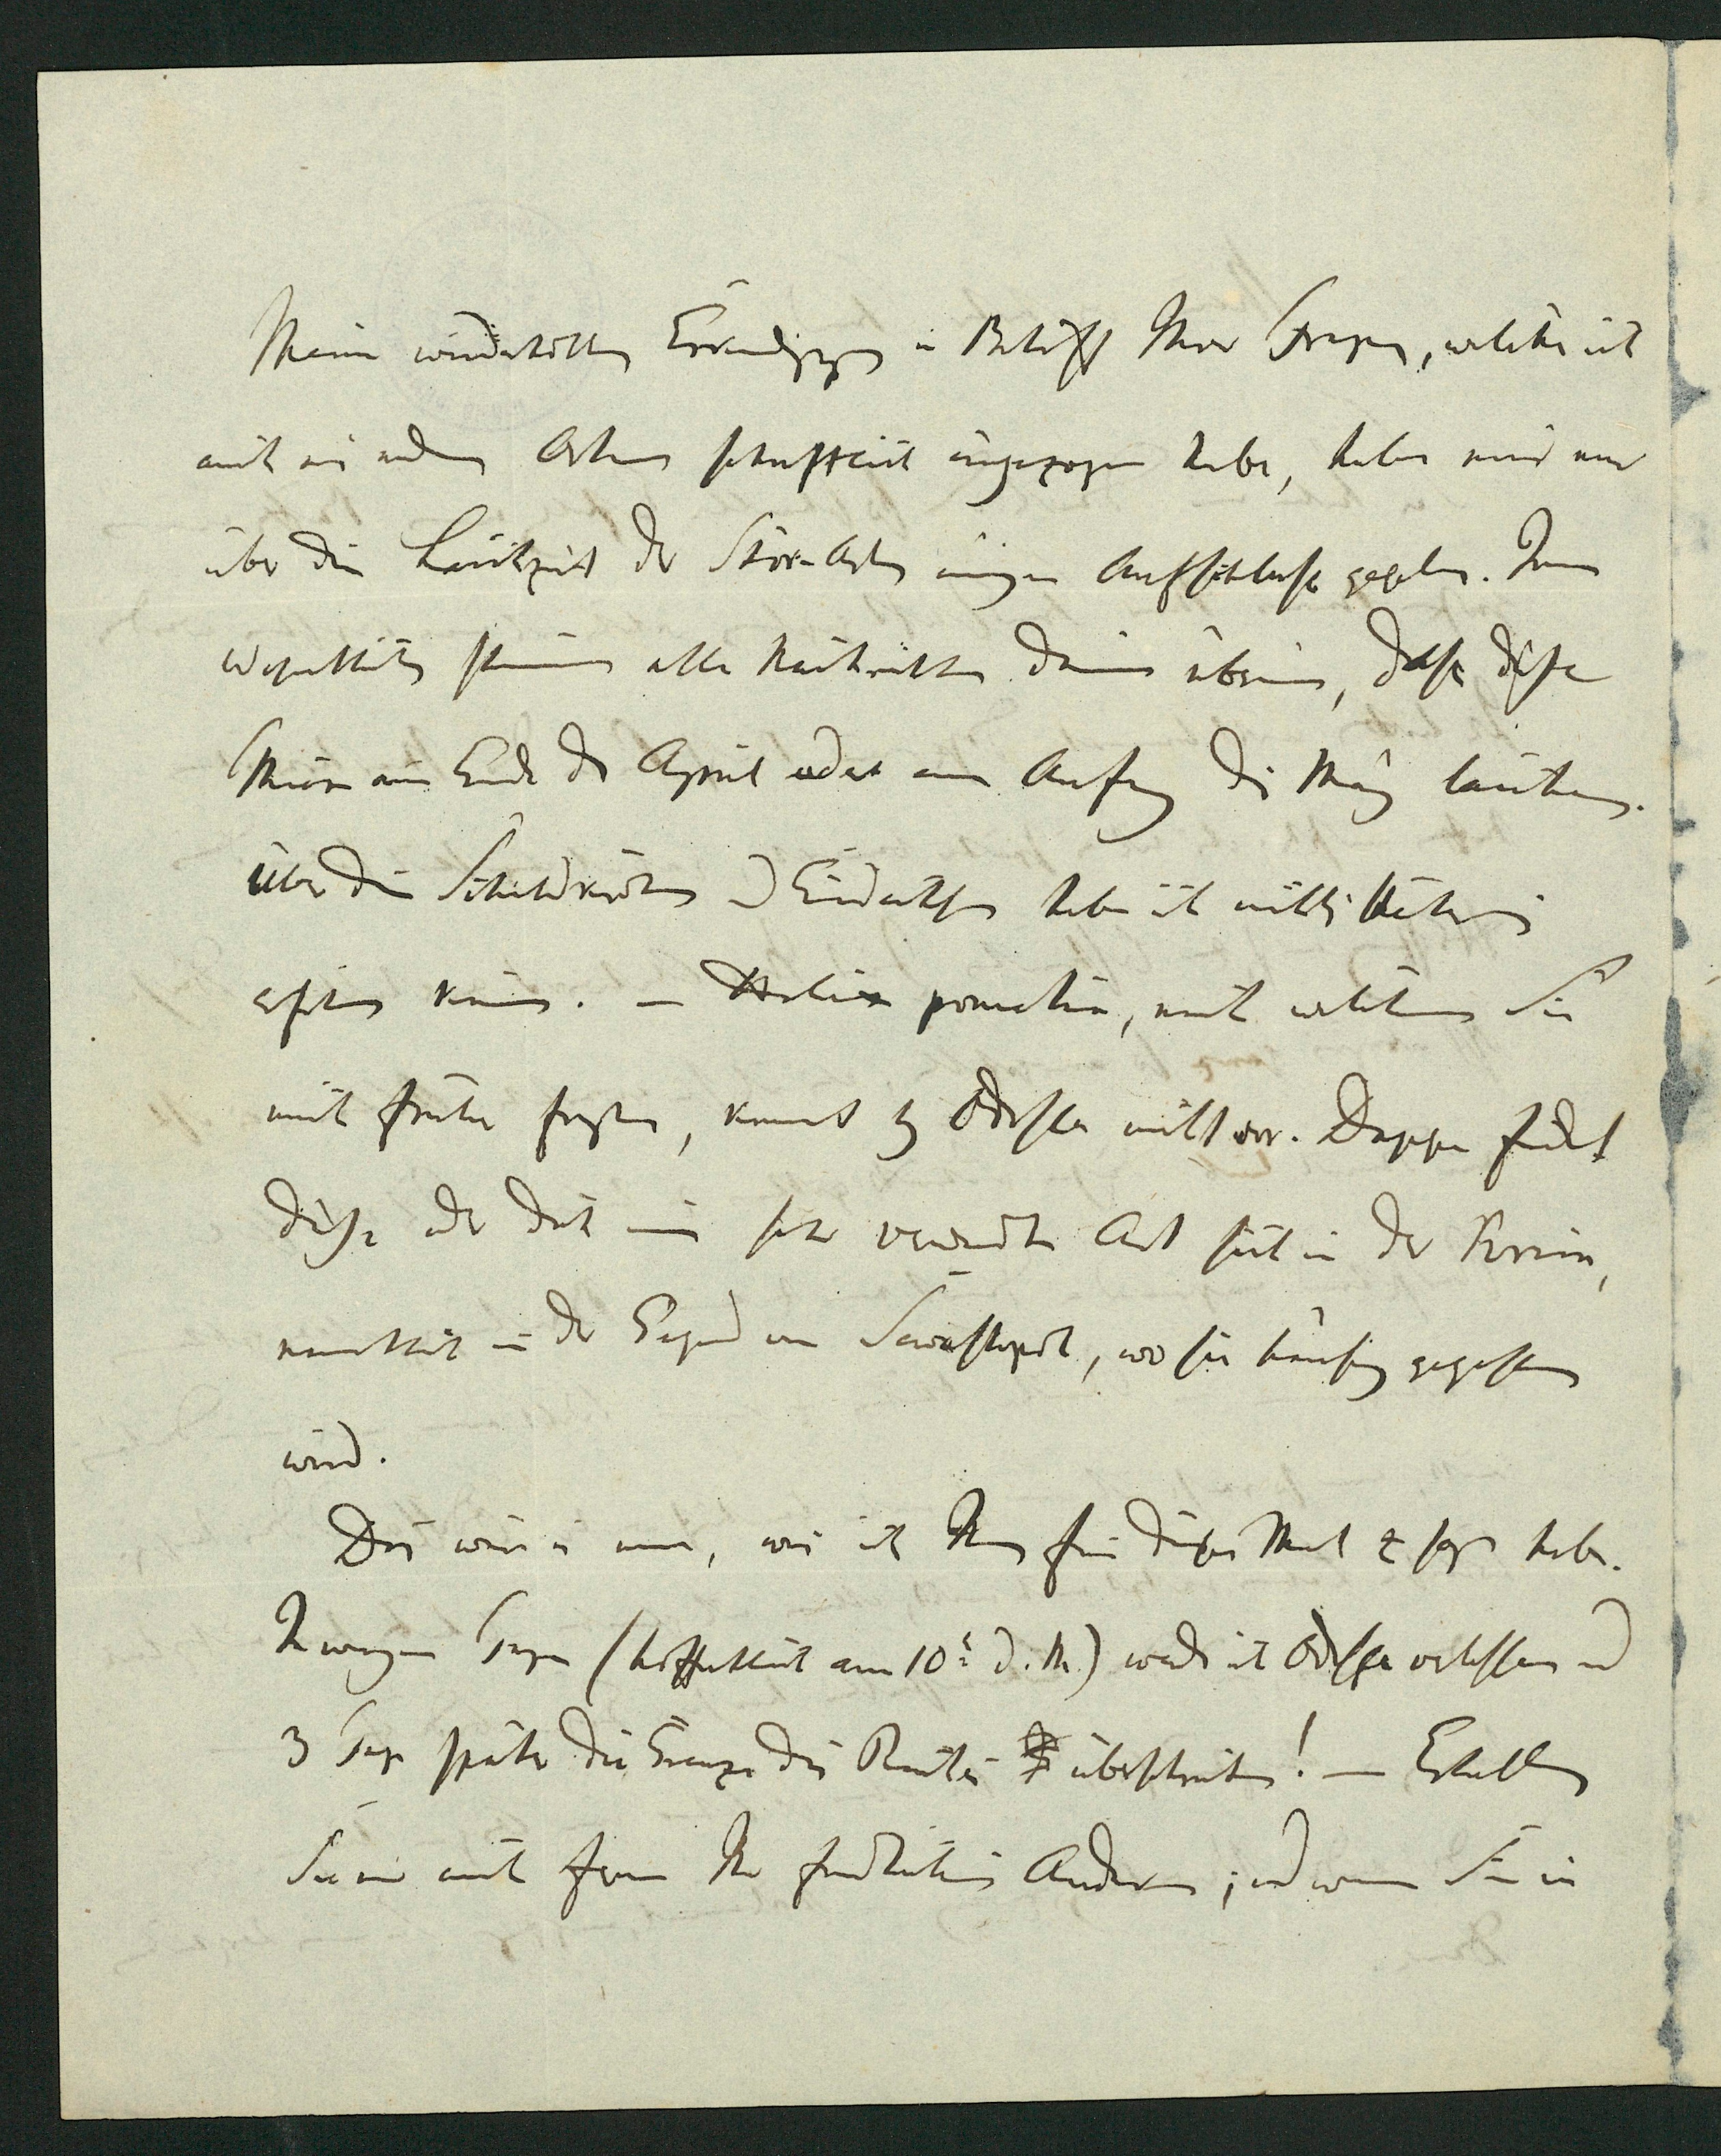 Meine wiederholten Erkundigungen in Betreff Ihrer Fragen, welche ich
auch an andern Orten schriftlich eingezogen habe, haben mir nur
über die Laichzeit der Stör-Arten einigen Aufschluss gegeben. Im
Wesentlichen stimmen alle Nachrichten darin überein, dass diese
Thiere am Ende des April oder am Anfang des May laichen.
Über die Schildkröten und Eidechsen habe ich nichts Näheres
erfahren können. — Helix pomatia, nach welcher Sie
mich früher fragten, kommt bey Odessa nicht vor. Dagegen findet
diese oder doch eine sehr verwandte Art sich in der Krimm,
namentlich in der Gegend von Sewastopol, wo sie häufig gegessen
wird.
Das wäre es nun, was ich Ihnen für dieses Mal zu sagen habe.
In wenigen Tagen (hoffentlich am 10t d. M.) werde ich Odessa verlassen und
3 Tage später die Grenze des Reiches überschreiten! — Erhalten
Sie mir auch fern Ihr freundliches Andenken; und wenn Sie in